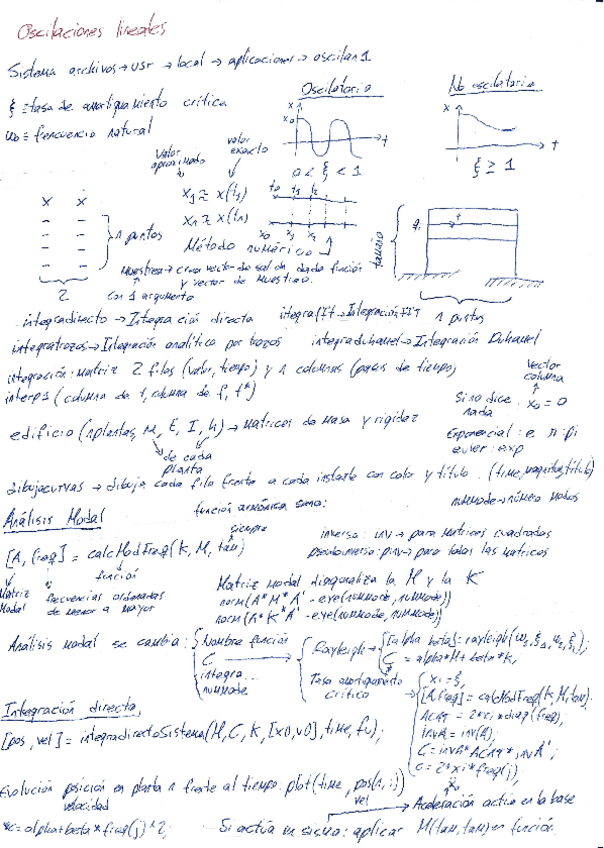 Oscilaciones lineales
Sistema archivos → usr → local → aplicaciones → oscilan1.
ξ ≡ tasa de amortiguamiento crítica
ω₀ ≡ frecuencia natural
Oscilatorio
No oscilatorio
x
x₀
t
0 < ξ < 1
x
t
ξ ≥ 1
valor aproximado
valor exacto
x₁ ≈ x(t₁)
xₙ ≈ x(tₙ)
Método numérico
t₀ t₁ t₂
x₀ x₁
x x
n puntos
2
tamaño
n puntos
Muestrea → crea vector de salida dada función
y vector de muestreo.
con 1 argumento
integradirecto → Integración directa
integrafft → Integración FFT
integratrozos → Integración analítica por trozos
integraduhamel → Integración Duhamel
integración: matriz 2 filas (valor, tiempo) y n columnas (pasos de tiempo)
interp1 (columna de t, columna de f, t*)
vector columna
Si no dice nada x₀ = 0
edificio (nplantas, M, E, I, h) → matrices de masa y rigidez
de cada planta
Exponencial: e π: pi
euler: exp
dibujacurvas → dibuja cada fila frente a cada instante con color y título. (time, magnitud, título)
función armónica seno:
nummode → número modos
Análisis Modal
siempre
[A, freq] = calcModFreq(K, M, tam)
función
Matriz Modal
frecuencias ordenadas de menor a mayor
inversa: inv → para matrices cuadradas
pseudoinversa: pinv → para todas las matrices
Matriz modal diagonaliza la M y la K
norm(A*M*A' - eye(nummode, nummode))
norm(A*K*A' - eye(nummode, nummode))
Análisis modal se cambia:
Nombre función
C
integra...
nummode
Rayleigh →
[alpha beta] = rayleigh(
C = alpha*M + beta*K;
Tasa amortiguamiento crítico →
xi = ξ;
[A, freq] = calcModFreq(K, M, tam);
ACAT = 2*xi*diag(freq);
invA = inv(A);
C = invA*ACAT*invA';
c = 2*xi*freq(j);
Integración directa
[pos, vel] = integradirectoSistema(M, C, K, [x0, v0], time, fv);
Evolución posición en planta n frente al tiempo: plot(time, pos(n, :))
velocidad
vel
*c = alpha + beta*freq(j)^2;
Aceleración activa en la base
Si actúa un sismo: aplicar M(tam, tam) en función.